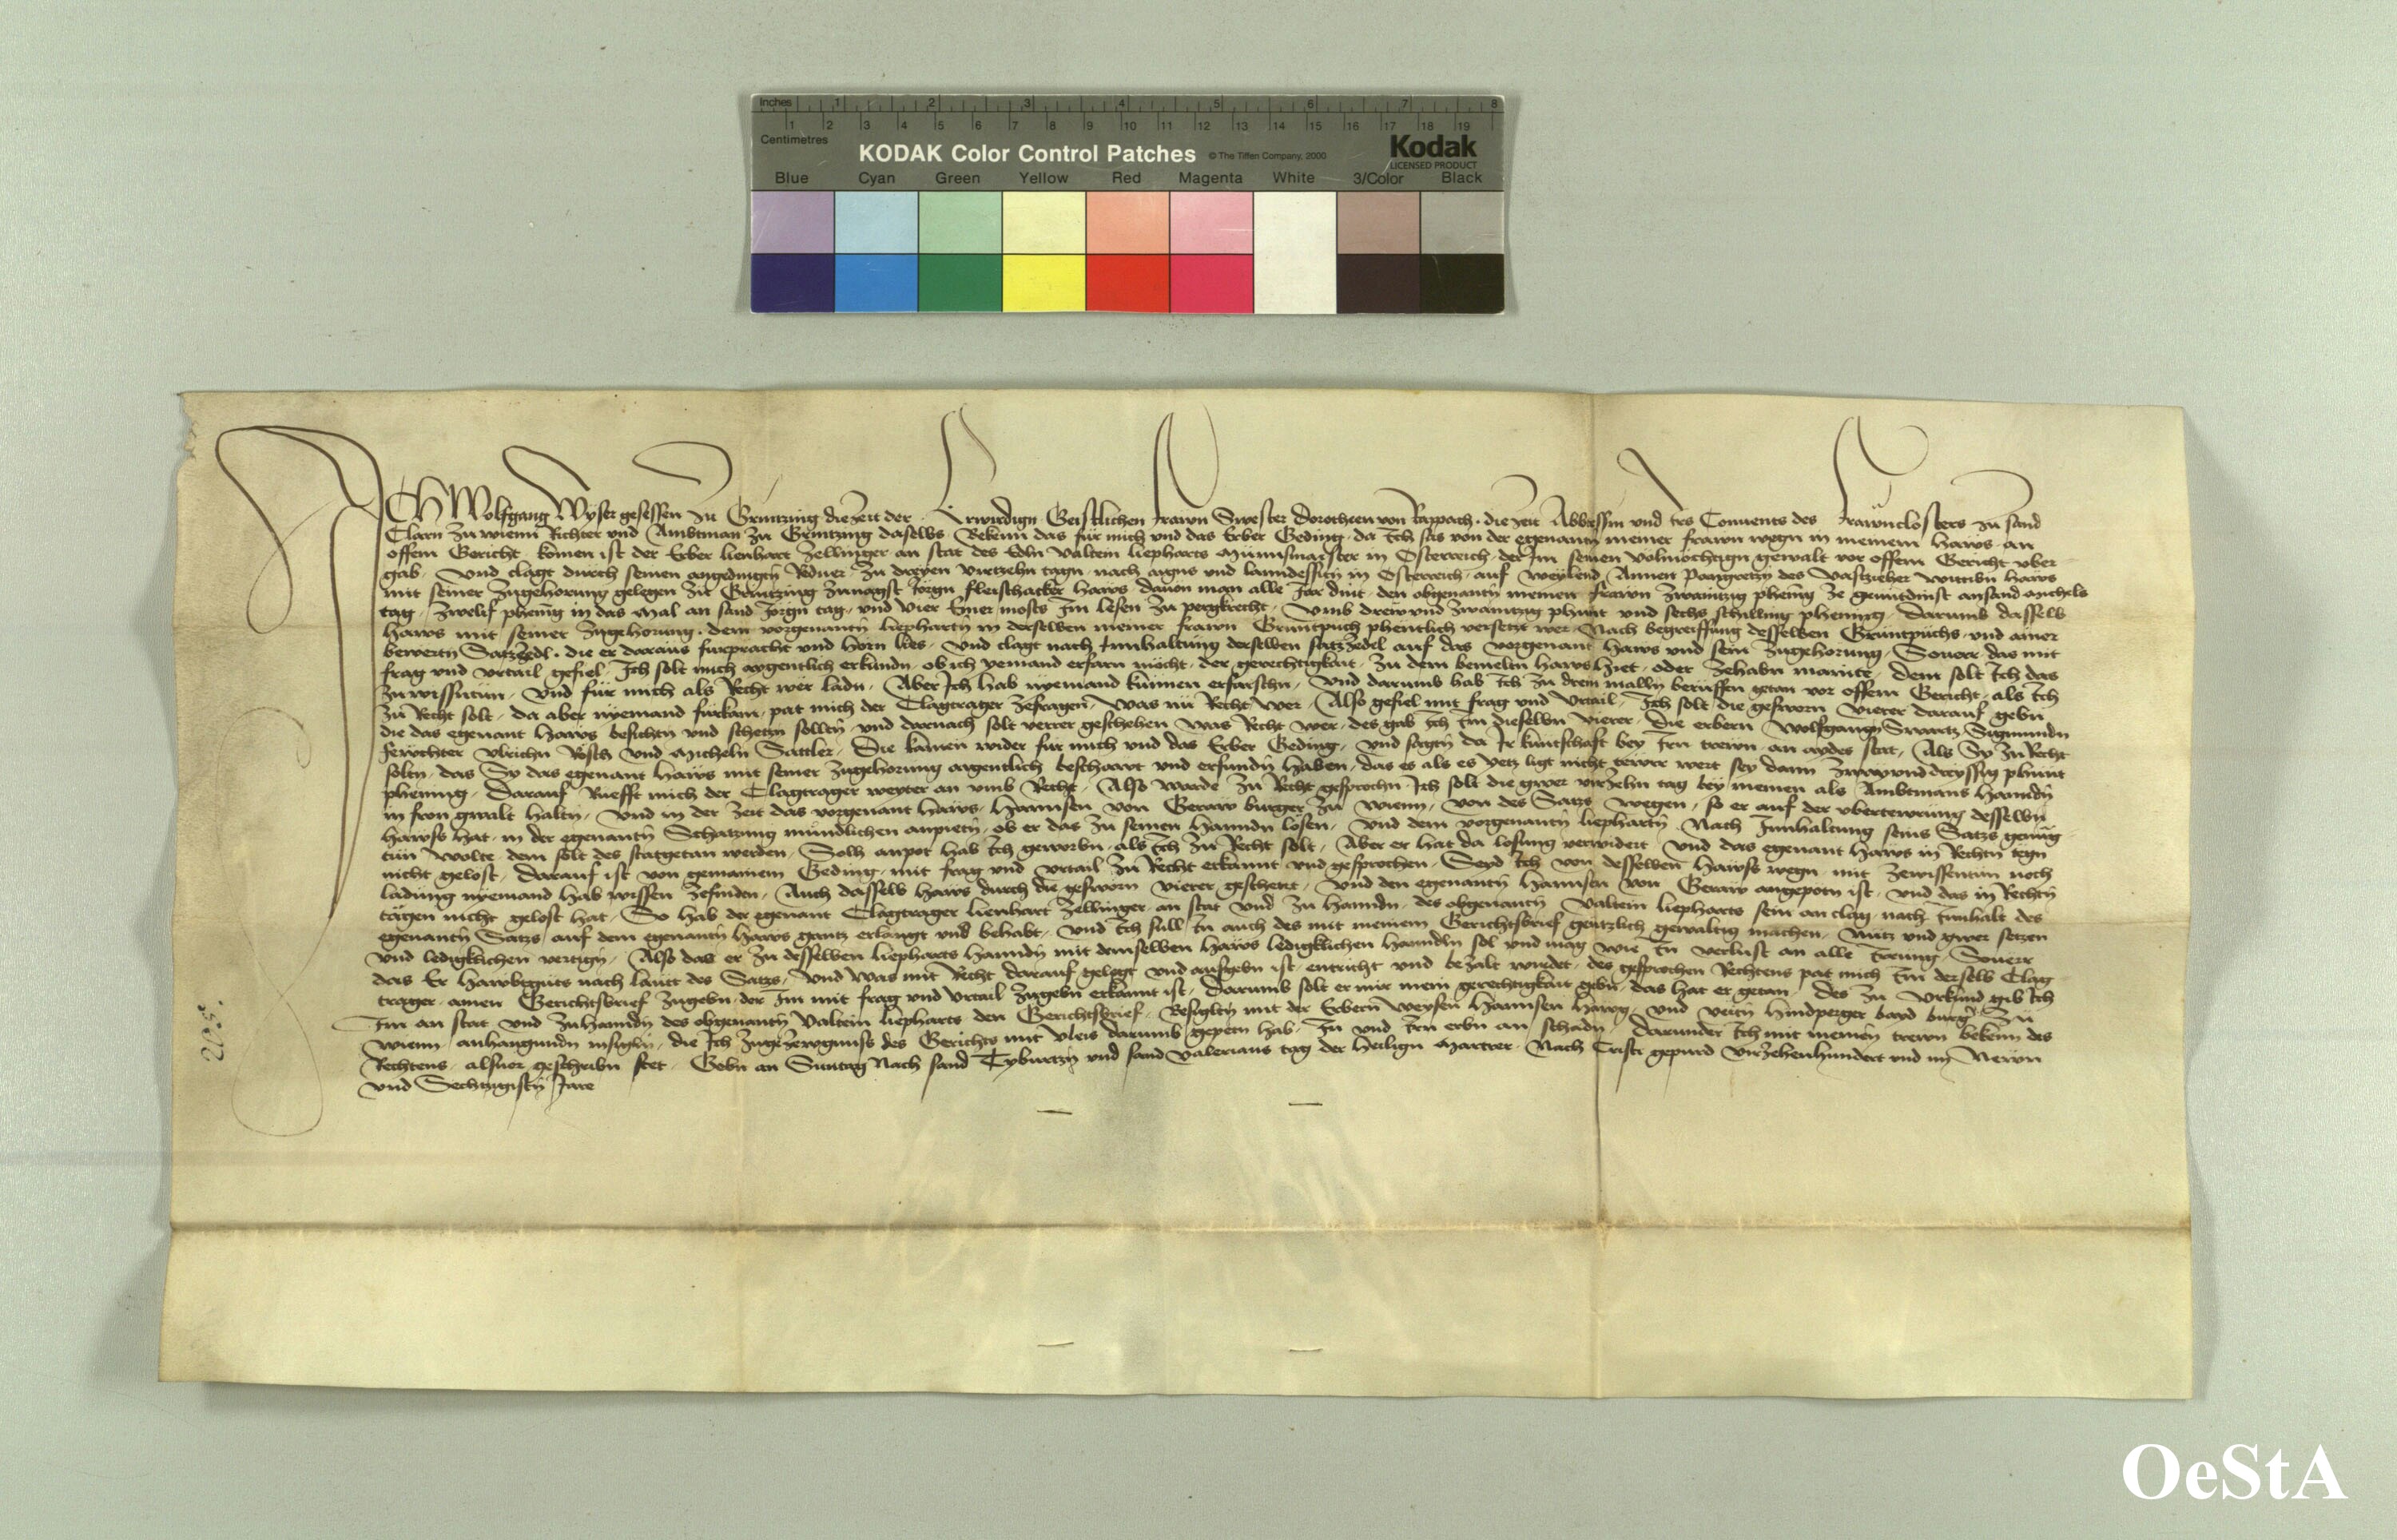 Inches 1 2 3 4 5 6 7 8
1 2 3 4 5 6 7 8 9 10 11 12 13 14 15 16 17 18 19
Centimetres
KODAK Color Control Patches © The Tiffen Company, 2000 Kodak
LICENSED PRODUCT
Blue Cyan Green Yellow Red Magenta White 3/Color Black
ICH Wolfgang Wyser gesessen zu Grintzing die zeit der Erwirdign Geistlichen frawn Swester Dorotheen von Rappach die zeit Abbtessin und des Convents des frawnclosters zu sand
Clarn zu wienn Richter und Ambtman zu Grintzing daselbs Bekenn das für mich und das Erber Geding da Ich sas von der egenantn meiner frawn wegn in meinem haws an
offem Gericht komen ist der Erber lienhart Zellinger an stat des Edln Valtein liepharts Münssmaister in Osterreich der Im seinen volmöchtign gewalt vor offem Gericht uber
gab und clagt durch seinen angedingtn Redner zu dreyen viertzehn tagn nach aigns und lanndessitn in Osterreich auf weylend Annen Pangretzn des wittibn haws
mit seiner zugehorung gelegen zu Grintzing zunagst Jörgn fleischacker haws dauon man alle Jar dint den obgenantn meinen frawn zwaintzig phening ze gruntdinst an sand Michels
tag zwelif phening in das mal an sand Jorgn tag und vier Emer mosts Im lesen zu pergkrecht Umb drew und zwaintzig phunt und sechs schilling phening darumb dasselb
haws mit seiner zugehorung dem vorgenantn liephartn in derselben meiner frawn Gruntpuch phentlich versetzt wer Nach begreiffung desselben Gruntpuchs und ainer
bewertn Satzzedl die er daraus furpracht und horn lies Und clagt nach Innhaltung derselben satzzedel auf das vorgenant haws und sein zugehorung Souerr das mit
frag und urtail gefiel Ich solt mich aygentlich erkundn ob ich yemand erfarn möcht der gerechtigkait zu dem bemeltn haws hiet oder zehabn mainte dem solt Ich das
zu wissntun Und für mich als Recht wer ladn Aber Ich hab nyemand künnen erfarschn Und darumb hab Ich zu drein malln berüffen getan vor offem Gericht als Ich
zu Recht solt da aber nyemand fürkam pat mich der Clagtrager zefragen was nu Recht wer Also gefiel mit frag und Urtail Ich solt die gesworn vierer darauf gebn
die das egenant haws besichtn und schetzn solltn und darnach solt verrer geschehen was Recht wer des gab Ich Im dieselbn vierer Die erbern Wolfgangn Swartz Sigmundn
ulrichn Rösch und Micheln Sattler Die kamen wider für mich und das Erber Geding und sagtn da Ir kuntschaft bey Irn trewn an aydes stat Als Sy zu Recht
soltn das Sy das egenant haws mit seiner zugehorung aigentlich beschawt und erfundn haben das es als es yetz ligt nicht tewrr wert sey dann zway und dreyssig phunt
phening Darauf Rüefft mich der Clagtrager weyter an umb Recht Also warde zu Recht gesprochn Ich solt die gwer virzehn tag bey meinen als Ambtmans hanndn
in fron gwalt haltn Und in der zeit das vorgenant haws hannsen von Geraw burger zu wienn von des Satzs wegen so er auf der ubertewrung desselbn
hawss hat in der egenantn Schatzung mündlichen anpietn ob er das zu seinen hanndn lösen und dem vorgenantn liephartn Nach Innhaltung seins Satzs genüg
tun wolte dem solt des statgetan werden Solh anpot hab Ich geworbn als Ich zu Recht solt Aber er hat da losung verwidert Und das egenant haws in Rechtn tegn
nicht gelöst darauf ist von gemainem Geding mit frag und urtail zu Recht erkannt und gesprochen Seyd Ich von desselben hawss wegn mit zewissentun noch
ladung nyemand hab wissen zefinden Auch dasselb haws durch die gesworn vierer geschetzt Und den egenantn hannsen von Geraw angepotn ist und das in Rechtn
tägen nicht gelost hat So hab der egenant Clagtrager lienhart Zellinger an stat und zu hanndn des obgenantn Valtein liepharts sein an clag nach Innhalt des
egenantn Satzs auf dem egenantn haws gantz erlangt und behabt Und Ich süll In auch des mit meinem Gerichtsbrief gentzlich gewaltig machen Nutz und gwer setzen
und ledigklichen vertign Also das er zu desselben liepharts hanndn mit demselben haws ledigklichen hanndln sol und mag wie In verlust an alle Irrung Souerr
das Er hawbtguts nach lautt des Satzs und was mit Recht darauf gelegt und aufgebn ist entricht und bezalt wurdet des gesprochen Rechtens pat mich Im derselb Clag
trager ainen Gerichtsbrief zugebn der Im mit frag und Urtail zugebn erkannt ist Darumb solt er mir mein gerechtigkait gebn das hat er getan Des zu Urkund gib Ich
Im an stat und zu hanndn des obgenantn Valtein liepharts den Gerichtsbrief Besigltn mit der Erbern weysen hannsen hawg und veitn hindperger bayd burger zu
wienn anhangundn insigln die Ich zugezewgnuss des Gerichts mit vleis darumb gepetn hab In und Irn erbn an schadn Darunder Ich mit meinen trewn bekenn des
Rechtens alsuor geschribn stet Gebn an Suntag Nach sand Tyburtzn und sand Valerians tag der heilign Martrer Nach Cristi gepurd Virzehenhundert und im Newn
und Sechtzigistn Jare
OeStA